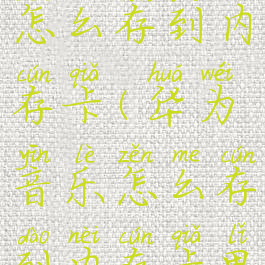 怎么存到内
cún qiǎ huá wéi
存卡(华为
yīn lè zěn me cún
音乐怎么存
dào nèi cún qiǎ lǐ
到内存卡里